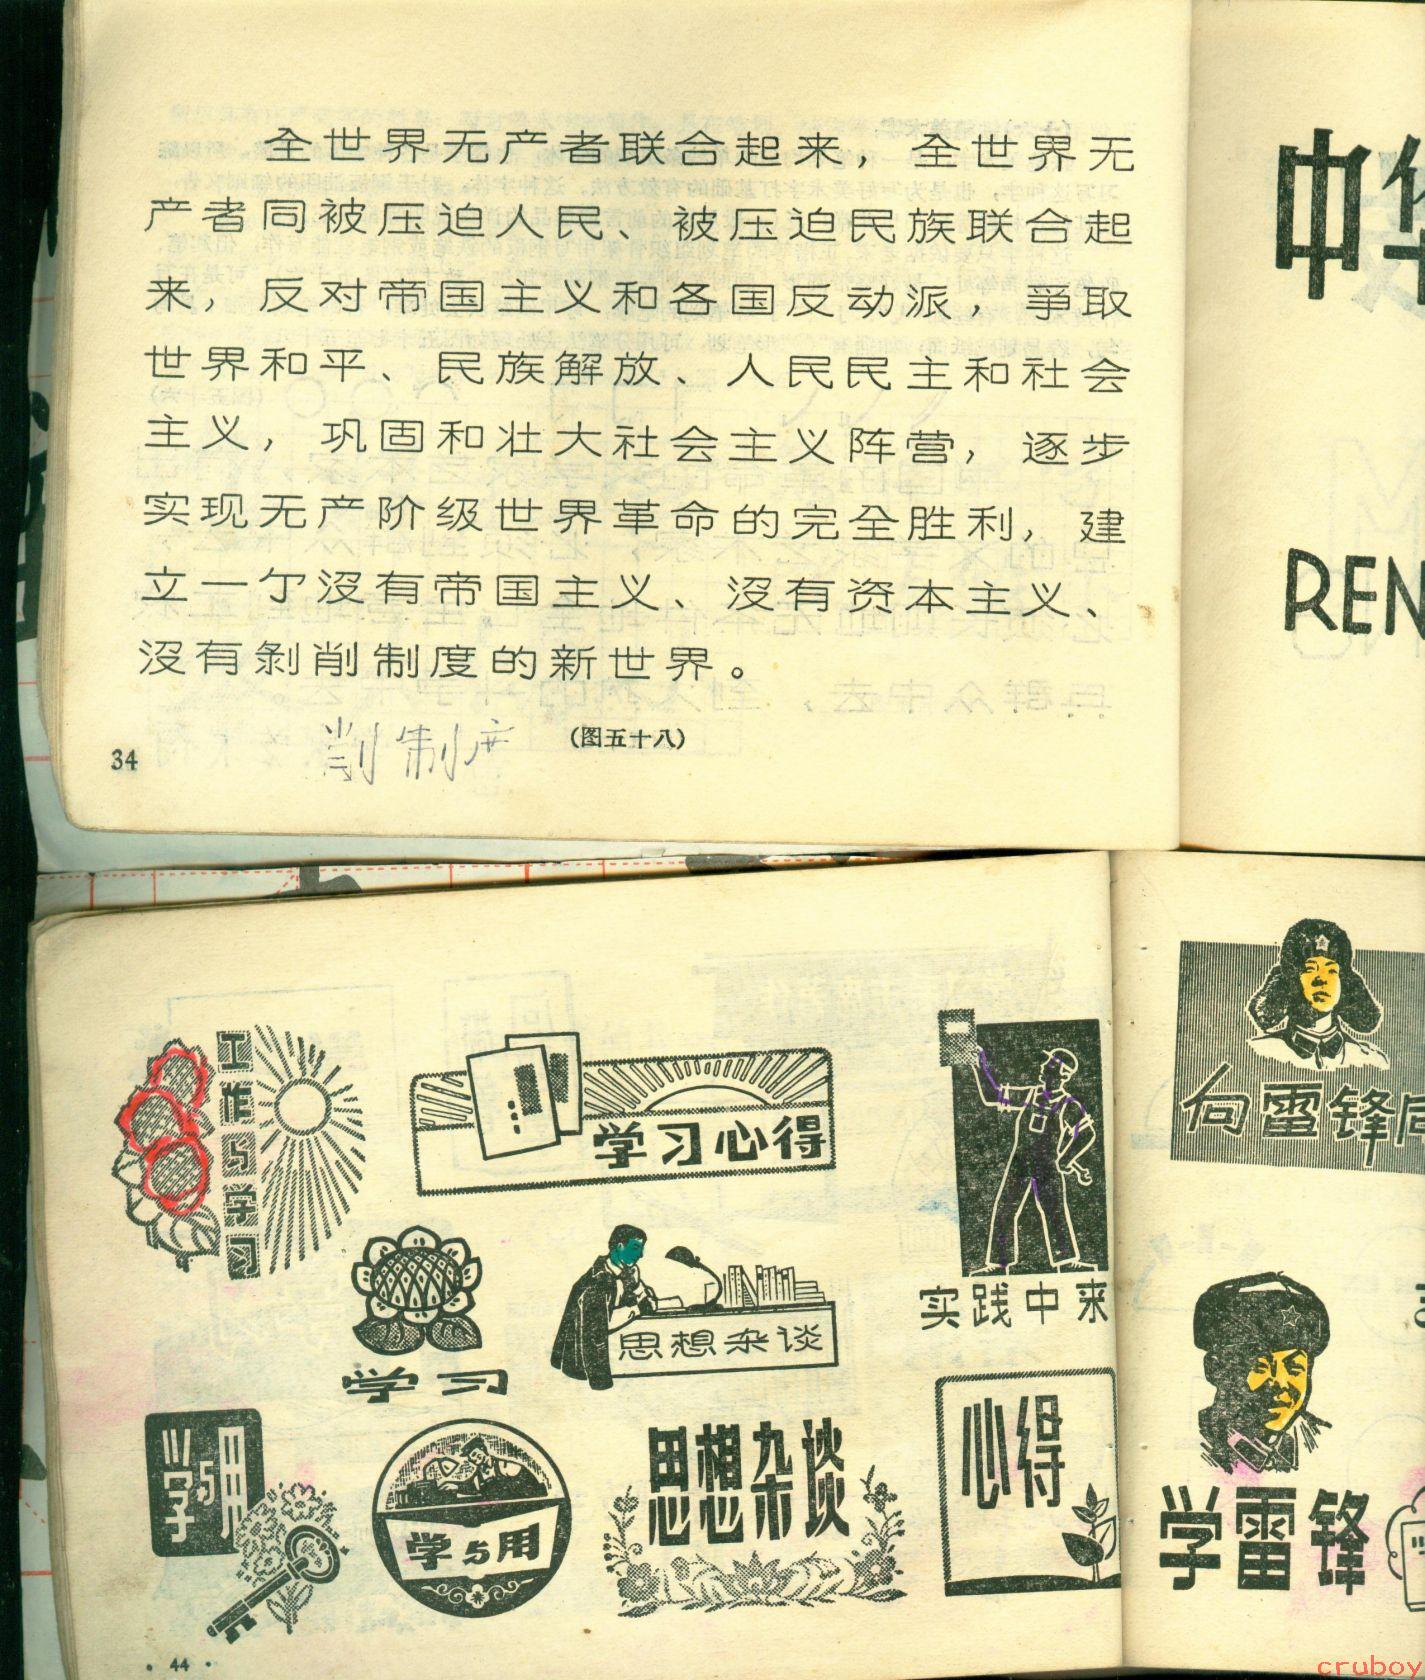 全世界无产者联合起来，全世界无
产者同被压迫人民、被压迫民族联合起
来，反对帝国主义和各国反动派，爭取
世界和平、民族解放、人民民主和社会
主义，巩固和壮大社会主义阵营，逐步
实现无产阶级世界革命的完全胜利，建
立一亇沒有帝国主义、沒有资本主义、
沒有剥削制度的新世界。
削制度
(图五十八)
34
中华
REN
工作与学习
学习心得
实践中来
向雷锋同
学习
思想杂谈
学与用
学与用
思想杂谈
心得
学雷锋
44
cruboy